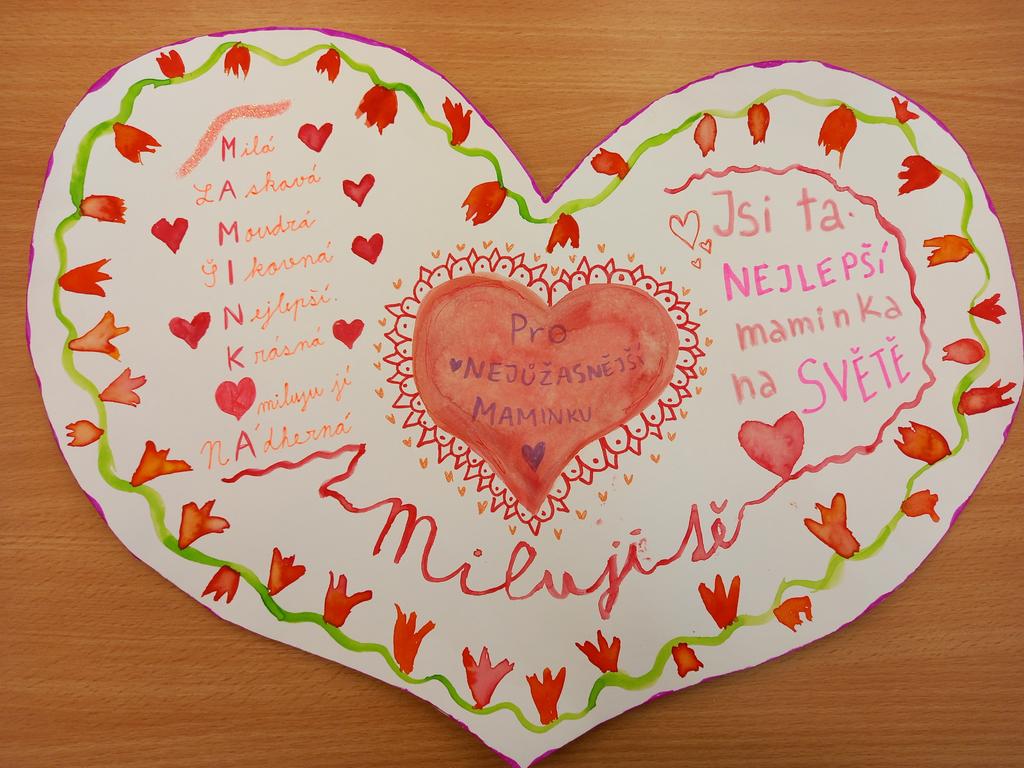 Milá
LAskavá
Moudrá
ŠIkovná
Nejlepší.
Krásná
miluju jí
nÁdherná
Pro
NEJÚŽASNĚJŠÍ
MAMINKU
Jsi ta.
NEJLEPŠÍ
maminka
na SVĚTĚ
Miluji tě